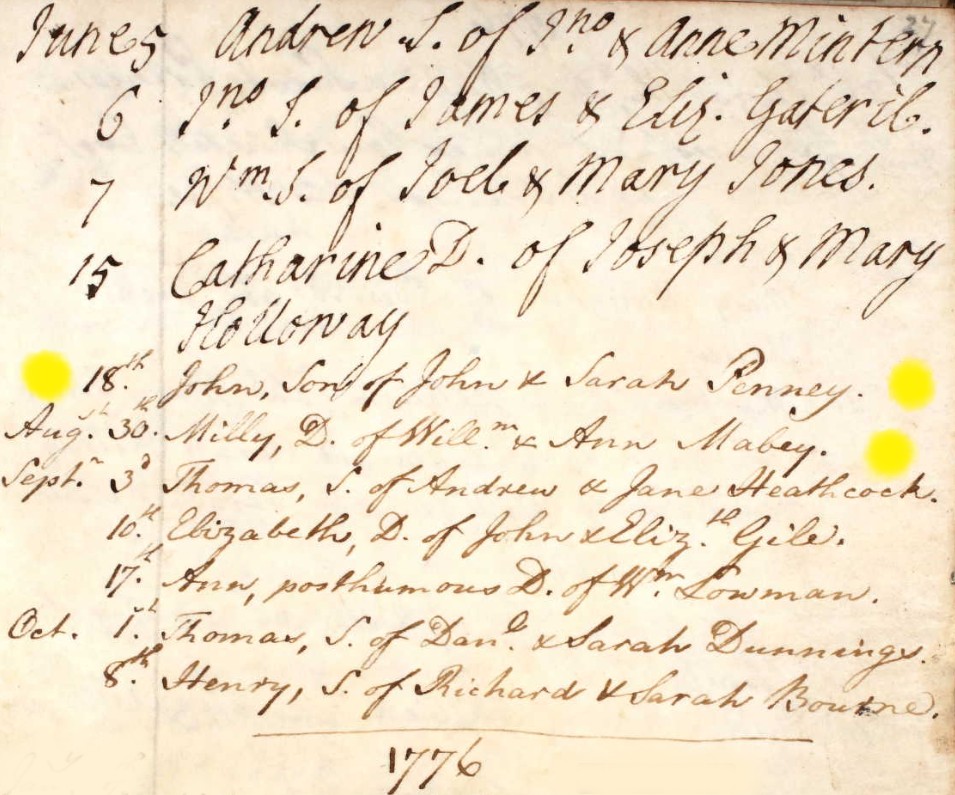 June 5 Andrew S. of Jno & Anne Mintern
6 Jno S. of James & Eliz. Gateril.
7 Wm. S. of Joel & Mary Jones.
15 Catharine D. of Joseph & Mary
Holloway
18.th John, Son of John & Sarah Penney.
Aug.st 30.th Milly, D. of Will.m & Ann Mabey.
Sept.r 3d Thomas, S. of Andrew & Jane Heathcock.
10.th Elizabeth, D. of John & Eliz.th Gile.
17.th Ann, posthumous D. of Wm. Lowman.
Oct. 1.st Thomas, S. of Dan.l & Sarah Dunnings.
8.th Henry, S. of Richard & Sarah Bourne.
1776